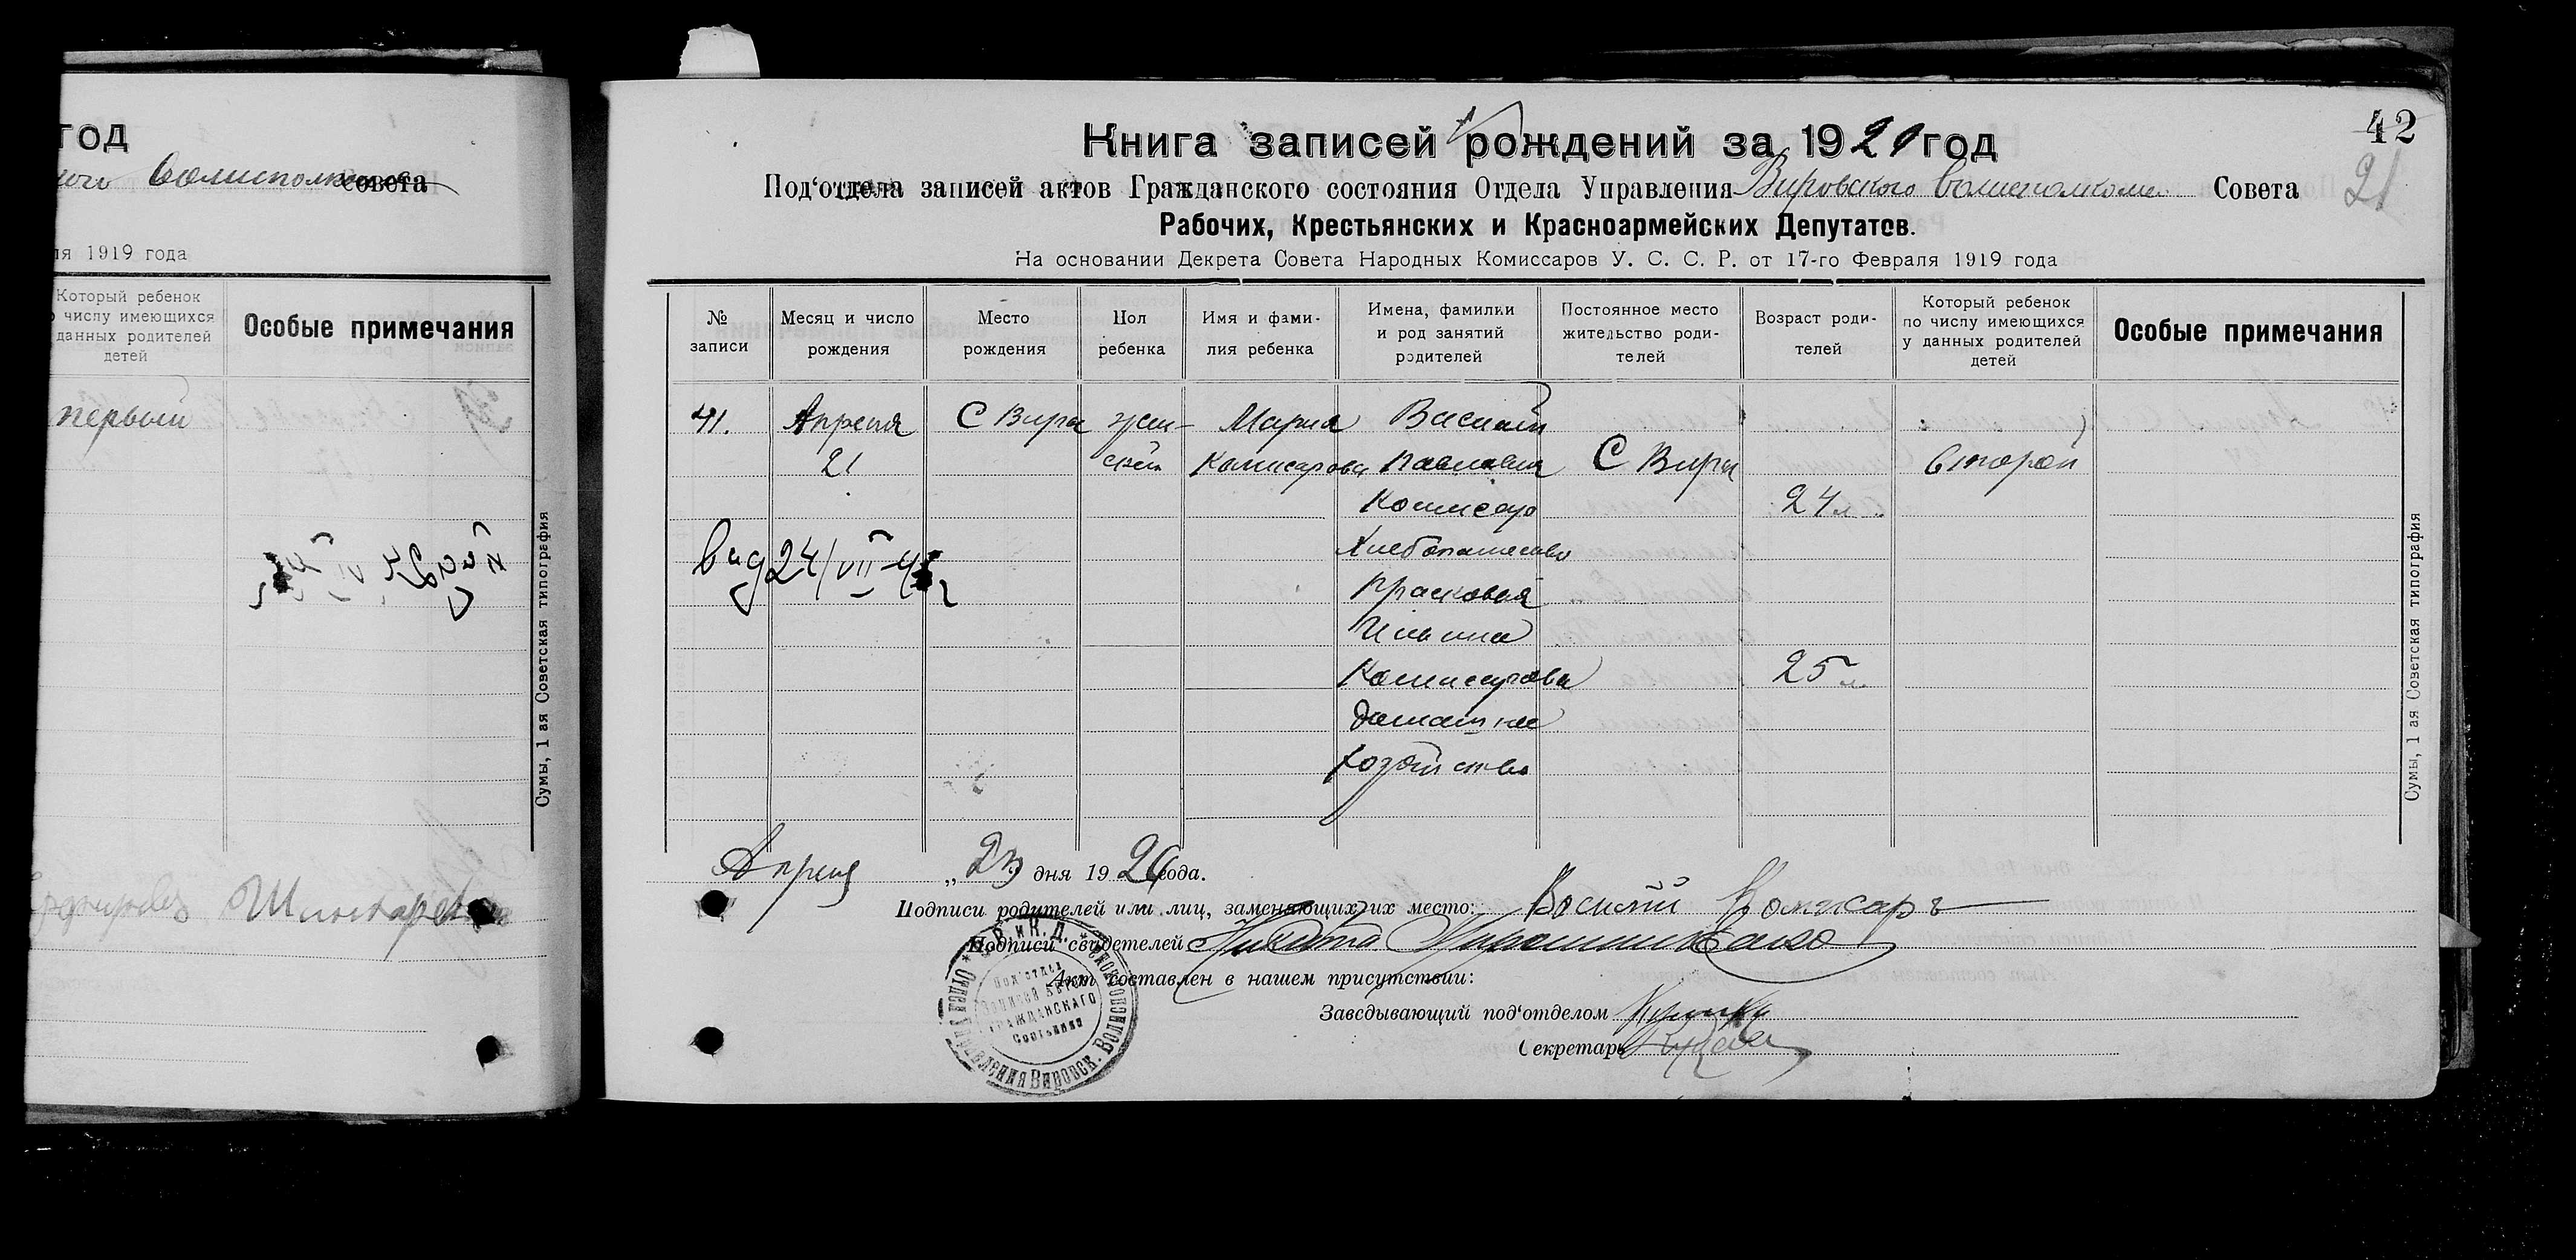 год
Волисполкома совета
ля 1919 года
Который ребенок
числу имеющихся
данных родителей
детей
Особые примечания
первый
Сумы, 1 ая Советская типография
42
21
Книга записей рождений за 1920 год
Под‘отдела записей актов Гражданского состояния Отдела Управления Вировского Волисполкома Совета
Рабочих, Крестьянских и Красноармейских Депутатов.
На основании Декрета Совета Народных Комиссаров У. С. С. Р. от 17-го Февраля 1919 года
№ записи
Месяц и число рождения
Место рождения
Пол ребенка
Имя и фами- лия ребенка
Имена, фамилии и род занятий родителей
Постоянное место жительство роди- телей
Возраст роди- телей
Который ребенок по числу имеющихся у данных родителей детей
Особые примечания
41. Апреля С Виры жен- Мария Василий
21 ской Комисарова Павлович С Виры Второй
Комисар 24 л.
Хлебопашество
вид 24/VII-4
Прасковья
Ильина
Комисарова 25 л.
домашнее
хозяйство
Сумы, 1 ая Советская типография
Апреля „23 дня 1920 года.
Подписи родителей или лиц, заменяющих их место: Василий Комисаръ
Подписи свидетелей Никита Мирошниченко
Акт составлен в нашем присутствии:
Заведывающий под‘отделом
Секретарь
Р. и К. Д.
Отдел Управления Вировск. Волисполком
Под‘отдел Записей Актов Гражданскаго Состояния